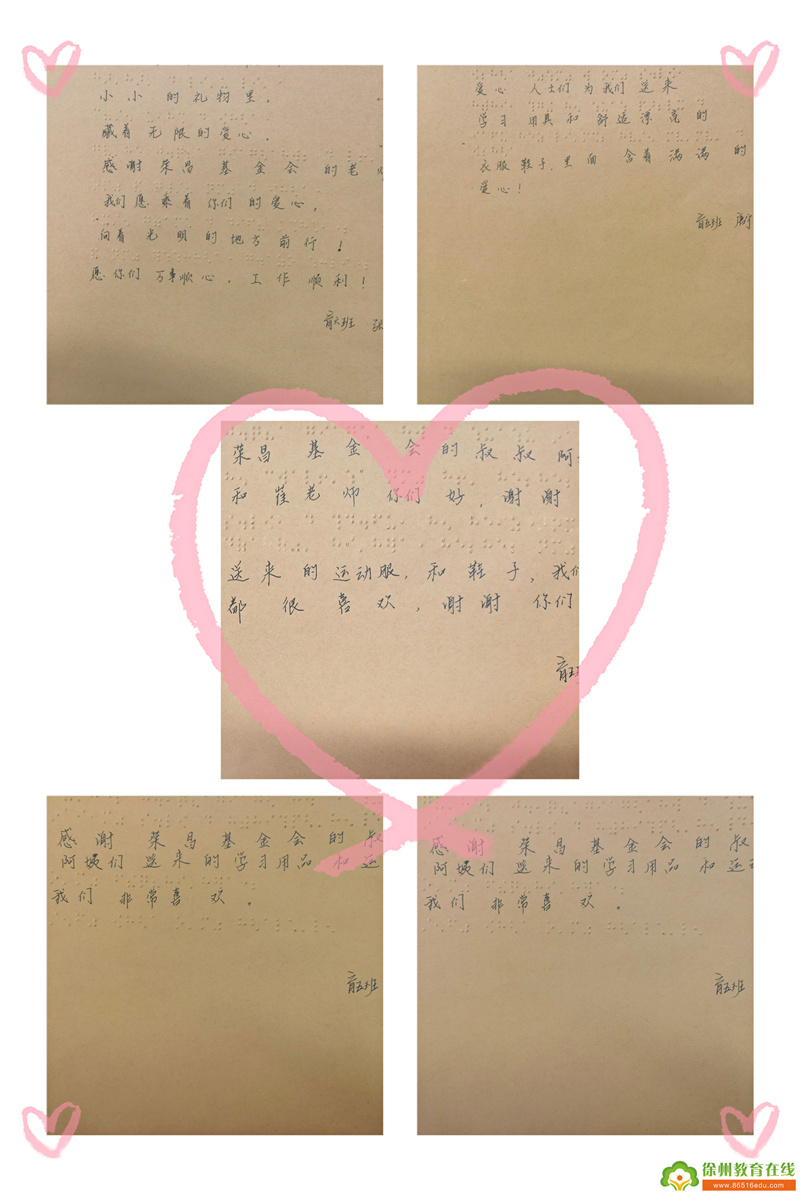 小小的礼物里，
藏着无限的爱心，
感谢荣昌基金会的老
我们愿乘着你们的爱心，
向着光明的地方前行！
愿你们万事顺心，工作顺利！
爱心人士们为我们送来
学习用具和舒适漂亮的
衣服鞋子，里面含着满满的
爱心！
荣昌基金会的叔叔阿
和崔老师你们好，谢谢
送来的运动服，和鞋子，我们
都很喜欢，谢谢你们
感谢荣昌基金会的叔
阿姨们送来的学习用品和运
我们非常喜欢。
感谢荣昌基金会的叔
阿姨们送来的学习用品和运
我们非常喜欢。
徐州教育在线
www.86516edu.com